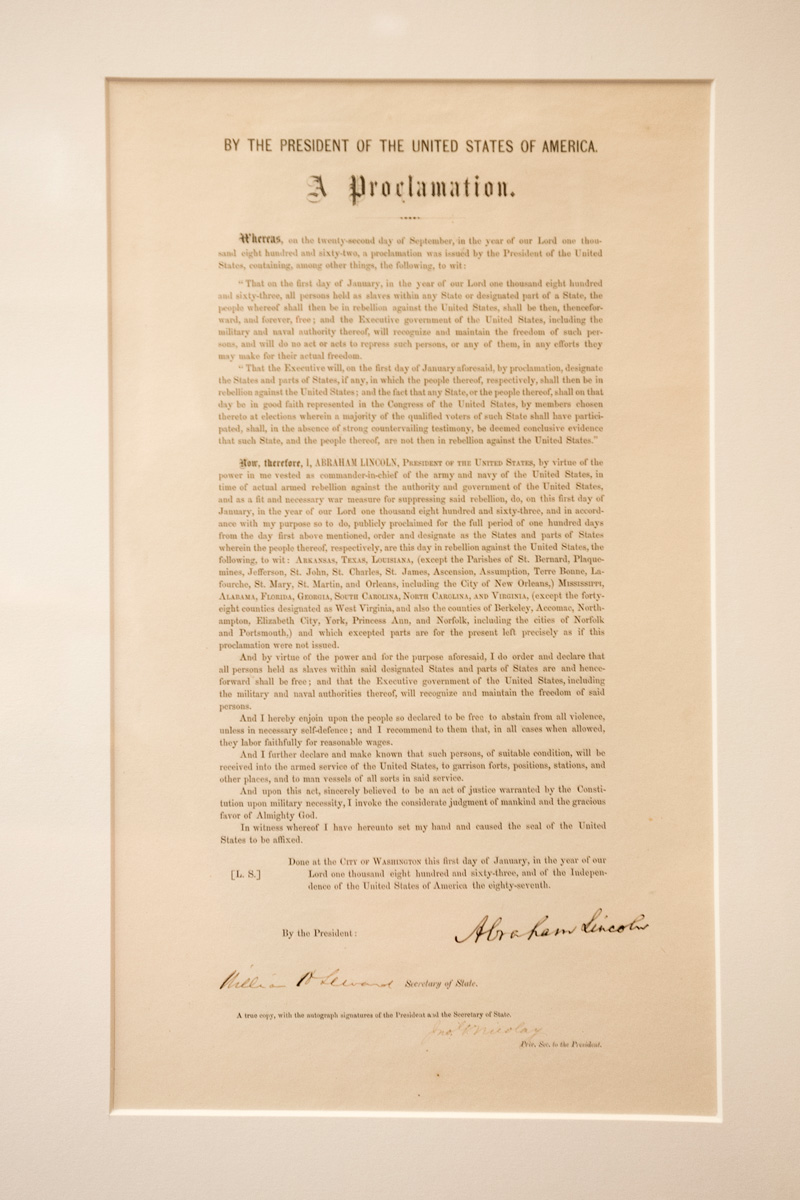 BY THE PRESIDENT OF THE UNITED STATES OF AMERICA.
A Proclamation.
Whereas, on the twenty-second day of September, in the year of our Lord one thou-
sand eight hundred and sixty-two, a proclamation was issued by the President of the United
States, containing, among other things, the following, to wit:
"That on the first day of January, in the year of our Lord one thousand eight hundred
and sixty-three, all persons held as slaves within any State or designated part of a State, the
people whereof shall then be in rebellion against the United States, shall be then, thencefor-
ward, and forever, free; and the Executive government of the United States, including the
military and naval authority thereof, will recognize and maintain the freedom of such per-
sons, and will do no act or acts to repress such persons, or any of them, in any efforts they
may make for their actual freedom.
"That the Executive will, on the first day of January aforesaid, by proclamation, designate
the States and parts of States, if any, in which the people thereof, respectively, shall then be in
rebellion against the United States; and the fact that any State, or the people thereof, shall on that
day be in good faith represented in the Congress of the United States, by members chosen
thereto at elections wherein a majority of the qualified voters of such State shall have partici-
pated, shall, in the absence of strong countervailing testimony, be deemed conclusive evidence
that such State, and the people thereof, are not then in rebellion against the United States."
Now, therefore, I, ABRAHAM LINCOLN, PRESIDENT OF THE UNITED STATES, by virtue of the
power in me vested as commander-in-chief of the army and navy of the United States, in
time of actual armed rebellion against the authority and government of the United States,
and as a fit and necessary war measure for suppressing said rebellion, do, on this first day of
January, in the year of our Lord one thousand eight hundred and sixty-three, and in accord-
ance with my purpose so to do, publicly proclaimed for the full period of one hundred days
from the day first above mentioned, order and designate as the States and parts of States
wherein the people thereof, respectively, are this day in rebellion against the United States, the
following, to wit: ARKANSAS, TEXAS, LOUISIANA, (except the Parishes of St. Bernard, Plaque-
mines, Jefferson, St. John, St. Charles, St. James, Ascension, Assumption, Terre Bonne, La-
fourche, St. Mary, St. Martin, and Orleans, including the City of New Orleans,) MISSISSIPPI,
ALABAMA, FLORIDA, GEORGIA, SOUTH CAROLINA, NORTH CAROLINA, AND VIRGINIA, (except the forty-
eight counties designated as West Virginia, and also the counties of Berkeley, Accomac, North-
ampton, Elizabeth City, York, Princess Ann, and Norfolk, including the cities of Norfolk
and Portsmouth,) and which excepted parts are for the present left precisely as if this
proclamation were not issued.
And by virtue of the power and for the purpose aforesaid, I do order and declare that
all persons held as slaves within said designated States and parts of States are and hence-
forward shall be free; and that the Executive government of the United States, including
the military and naval authorities thereof, will recognize and maintain the freedom of said
persons.
And I hereby enjoin upon the people so declared to be free to abstain from all violence,
unless in necessary self-defence; and I recommend to them that, in all cases when allowed,
they labor faithfully for reasonable wages.
And I further declare and make known that such persons, of suitable condition, will be
received into the armed service of the United States, to garrison forts, positions, stations, and
other places, and to man vessels of all sorts in said service.
And upon this act, sincerely believed to be an act of justice warranted by the Consti-
tution upon military necessity, I invoke the considerate judgment of mankind and the gracious
favor of Almighty God.
In witness whereof I have hereunto set my hand and caused the seal of the United
States to be affixed.
Done at the CITY OF WASHINGTON this first day of January, in the year of our
[L. S.] Lord one thousand eight hundred and sixty-three, and of the Indepen-
dence of the United States of America the eighty-seventh.
By the President: Abraham Lincoln
William H Seward Secretary of State.
A true copy, with the autograph signatures of the President and the Secretary of State.
Jno. G. Nicolay
Priv. Sec. to the President.